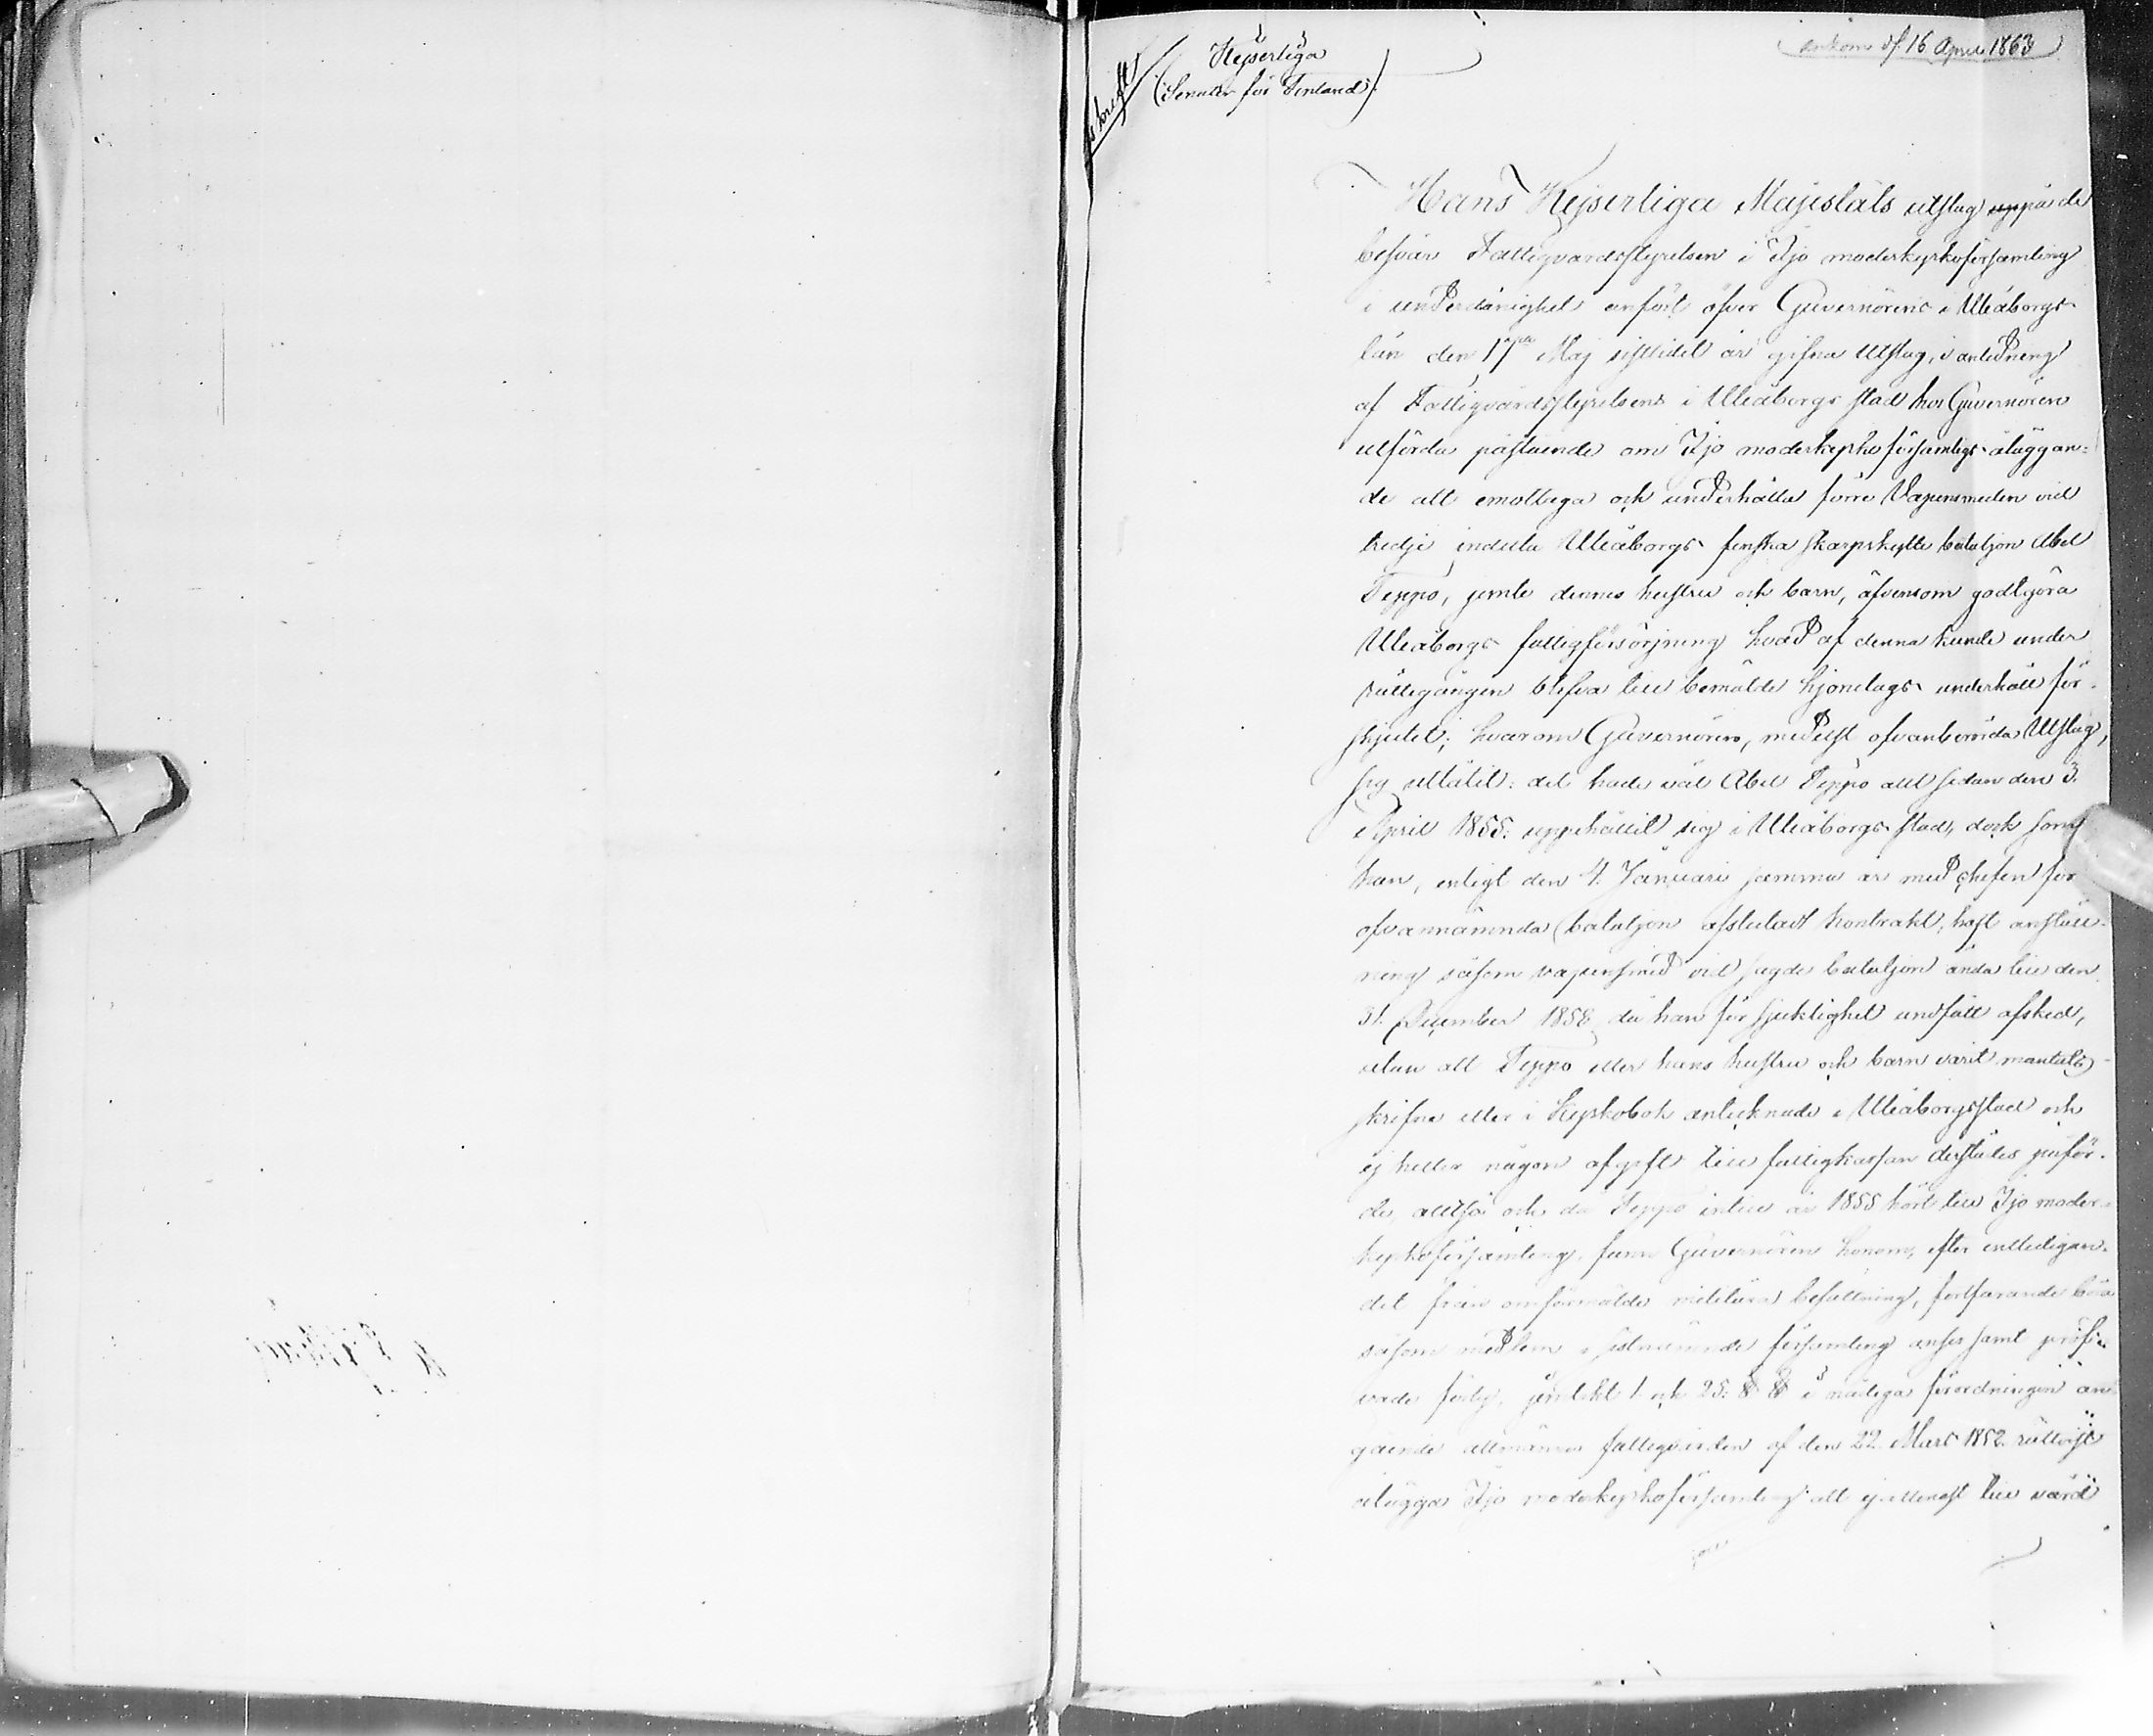 ankom d. 16 April 1863
Afskrift
Kejserliga
(Senaten för Finland)
Hans Kejserliga Majestäts utslag uppå de
besvär Fattigvårdsstyrelsen i Ijo moderkyrkoförsamling
i underdånighet anfört öfver Guvernörens i Uleåborgs
län den 17de Maj sistlidet år gifna Utslag, i anledning
af Fattigvårdsstyrelsens i Uleåborgs stad hos Guvernören
utförda påstående om Ijo moderkyrkoförsamligs åläggan-
de att emottaga och underhålla förre Vapensmeden vid
tredje indelta Uleåborgs finska skarpskytte bataljon Abel
Teppo, jemte dennes hustru och barn, äfvensom godtgöra
Uleåborgs fattigförsörjning hvad af denna kunde under
rättegången blifva till bemälde hjonelags underhåll för-
skjutet; hvarom Guvernören, medelst ofvanberörda Utslag,
sig utlåtit: det hade väl Abel Teppo allt sedan den 3.
April 1855. uppehållit sig i Uleåborgs stad, dock som
han, enligt den 4. Januari samma år med chefen för
ofvannämnda bataljon afslutadt kontrakt, haft anställ-
ning såsom vapensmed vid sagde bataljon ända till den
31. December 1858 då han för sjuklighet undfått afsked,
utan att Teppo eller hans hustru och barn varit mantals-
skrifne eller i Kyrkobok antecknade i Uleåborgs stad och
ej heller någon afgift till fattigkassan derstädes påför-
de, alltså och då Teppo intill år 1855 hört till Ijo moder-
kyrkoförsamling, funne Guvernören honom, efter entledigan-
det från omförmälde militära befattning, fortfarande böra
såsom medlem i sistnämnde församling anses samt pröfva-
de förty, jemlikt 1 och 25. § § i nådiga förordningen an-
gående allmänna fattigvården af den 22. Mars 1852. rättvist
ålägga Ijo moderkyrkoförsamling att ej allenast till vård